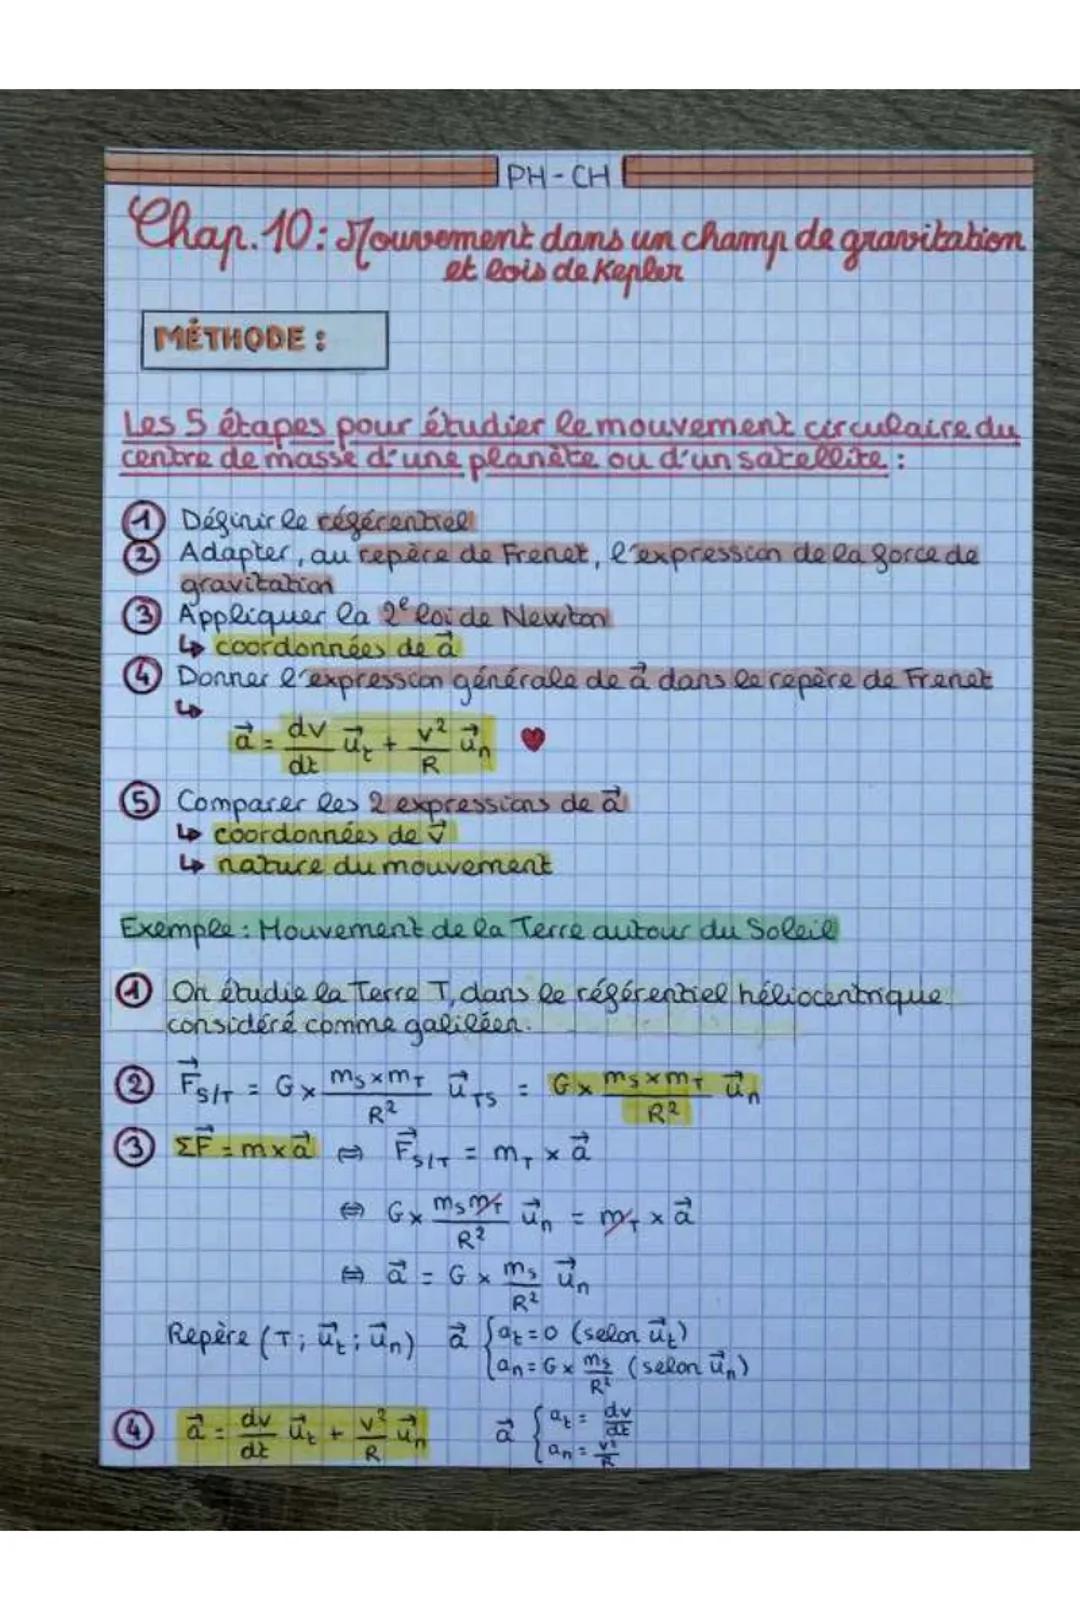 PH-CH
Chap. 10: Mouvement dans un champ de gravitation
et lois de Kepler
MÉTHODE :
Les 5 étapes pour étudier le mouvement circulaire du
centre de masse d'une planète ou d'un satellite :
① Définir le référentiel
② Adapter, au repère de Frenet, l'expression de la force de
gravitation
③ Appliquer la 2e loi de Newton
↳ coordonnées de a⃗
④ Donner l'expression générale de a⃗ dans le repère de Frenet
↳
a⃗ = dv/dt u⃗t + v²/R u⃗n ♥
⑤ Comparer les 2 expressions de a⃗
↳ coordonnées de v⃗
↳ nature du mouvement
Exemple : Mouvement de la Terre autour du Soleil
① On étudie la Terre T, dans le référentiel héliocentrique
considéré comme galiléen.
② F⃗S/T = G × mS×mT/R² u⃗TS = G × mS×mT/R² u⃗n
③ ΣF⃗ = m×a⃗ ⇔ F⃗S/T = mT × a⃗
⇔ G× mSmT/R² u⃗n = mT × a⃗
⇔ a⃗ = G × mS/R² u⃗n
Repère (T; u⃗t; u⃗n) a⃗ { at = 0 (selon u⃗t)
an = G × mS/R² (selon u⃗n)
④ a⃗ = dv/dt u⃗t + v²/R u⃗n a⃗ { at = dv/dt
an = v²/R